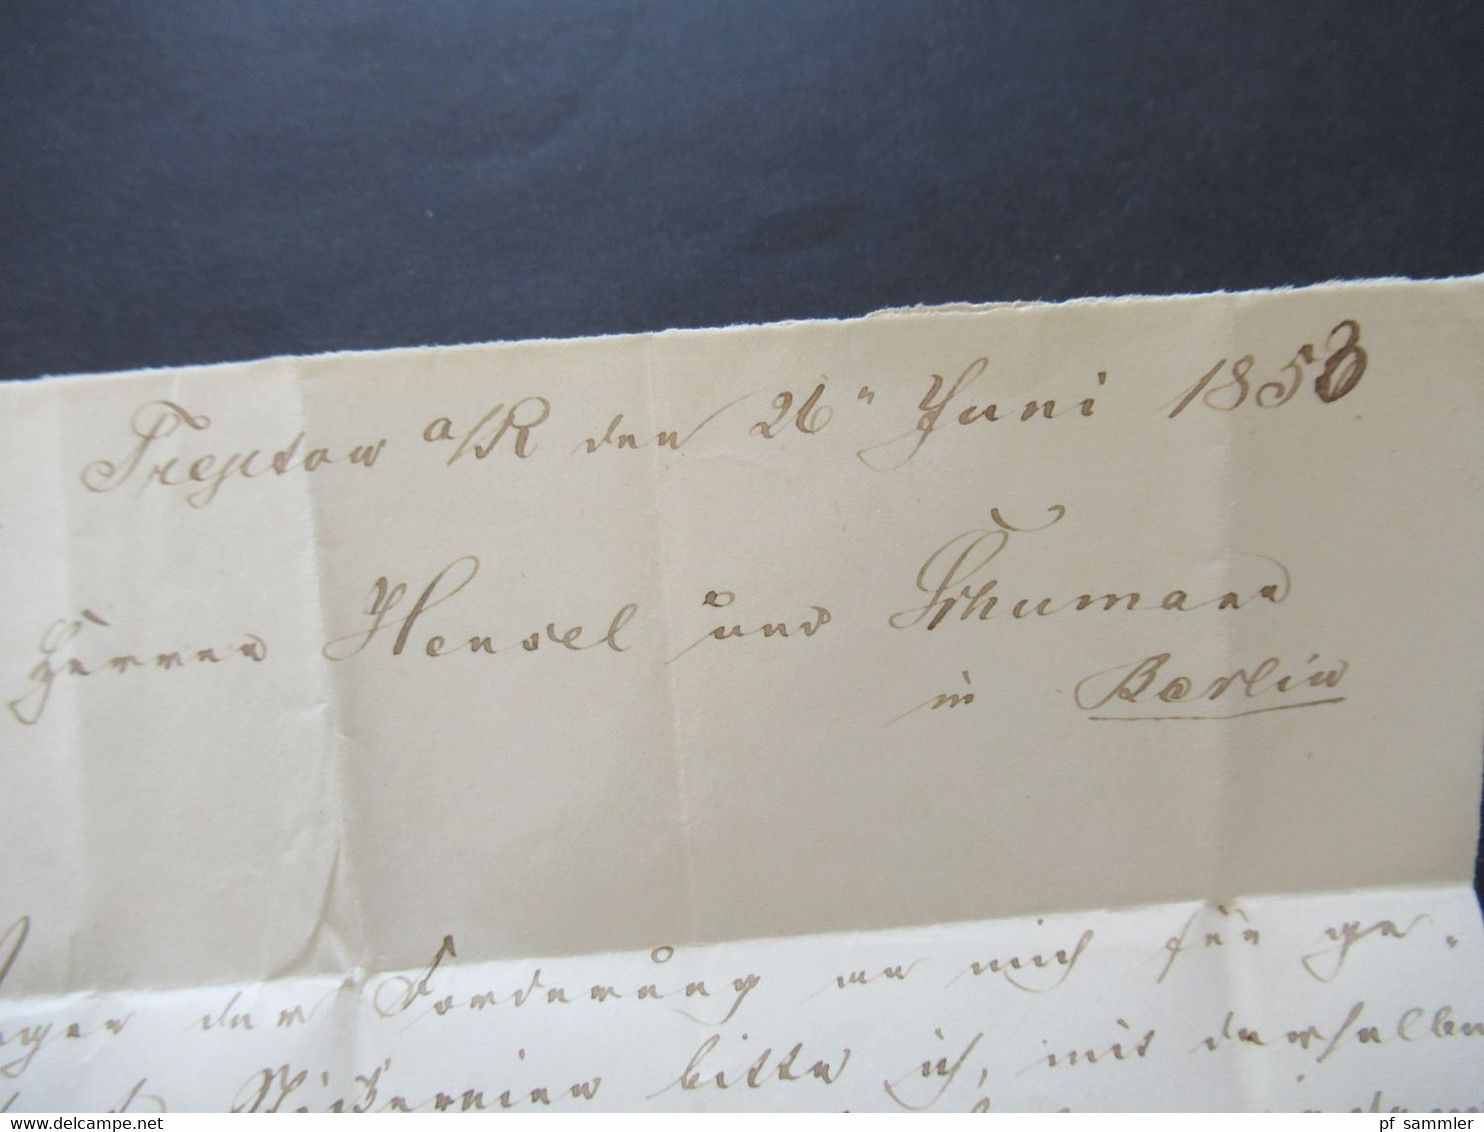 Treptow a/R den 26n Juni 1853
Herren Hensel und Schumann
in Berlin
der Forderung an mich für ge-
Stickereien bitte ich, mit derselben
www.delcampe.net
pf_sammler